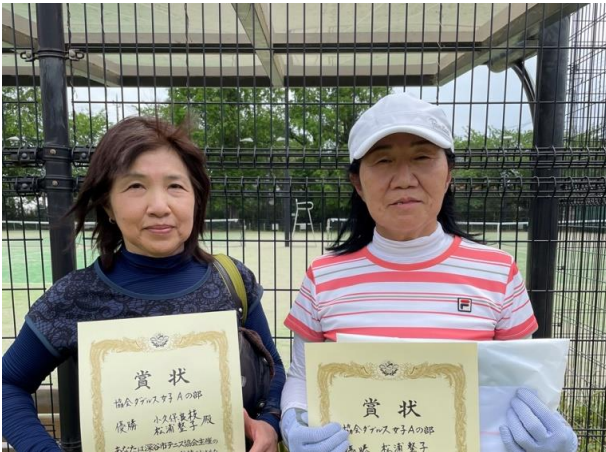 賞状
協会ダブルス女子Aの部
優勝
松浦整子 殿
あなたは深谷市テニス協会主催の
賞状
協会ダブルス女子Aの部
優勝 松浦整子
FILA